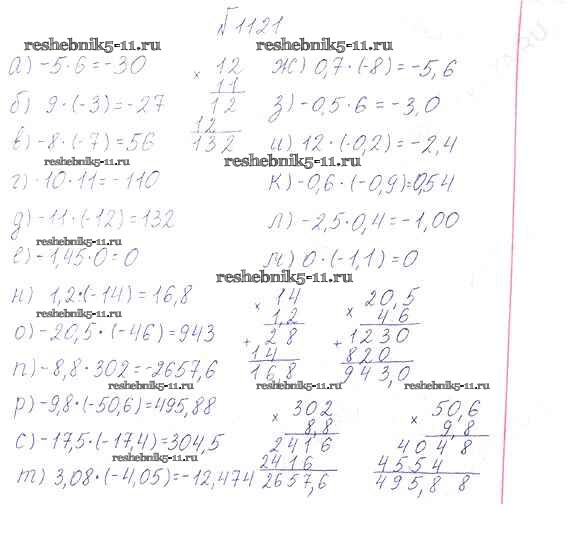 №1121
reshebnik5-11.ru reshebnik5-11.ru
а) -5·6=-30
× 12
11
12
12
132
ж) 0,7·(-8)=-5,6
б) 9·(-3)=-27
з) -0,5·6=-3,0
в) -8·(-7)=56
и) 12·(-0,2)=-2,4
reshebnik5-11.ru reshebnik5-11.ru
г) -10·11=-110
к) -0,6·(-0,9)=0,54
д) -11·(-12)=132
л) -2,5·0,4=-1,00
reshebnik5-11.ru
е) -1,45·0=0
м) 0·(-1,1)=0
reshebnik5-11.ru
н) 1,2·(-14)=16,8
× 14
1,2
+ 28
14
16,8
× 20,5
46
+ 1230
820
943,0
reshebnik5-11.ru
о) -20,5·(-46)=943
п) -8,8·302=-2657,6
reshebnik5-11.ru reshebnik5-11.ru
р) -9,8·(-50,6)=495,88
× 302
8,8
2416
2416
2657,6
× 50,6
9,8
4048
4554
495,88
с) -17,5·(-17,4)=304,5
reshebnik5-11.ru
т) 3,08·(-4,05)=-12,474